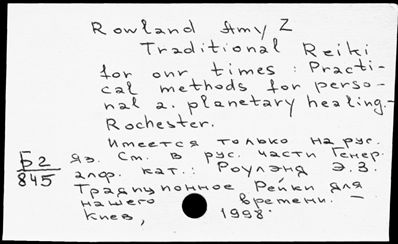 Rowland Amy Z
Traditional Reiki
for our times: Practi-
cal methods for perso-
nal a. planetary healing.-
Rochester.
Имеется только на рус.
яз. См. в рус. части Генер.
алф. кат.: Роулэнд Э.З.
Традиционное Рейки для
нашего времени. —
Киев, 1998.
Б2
845